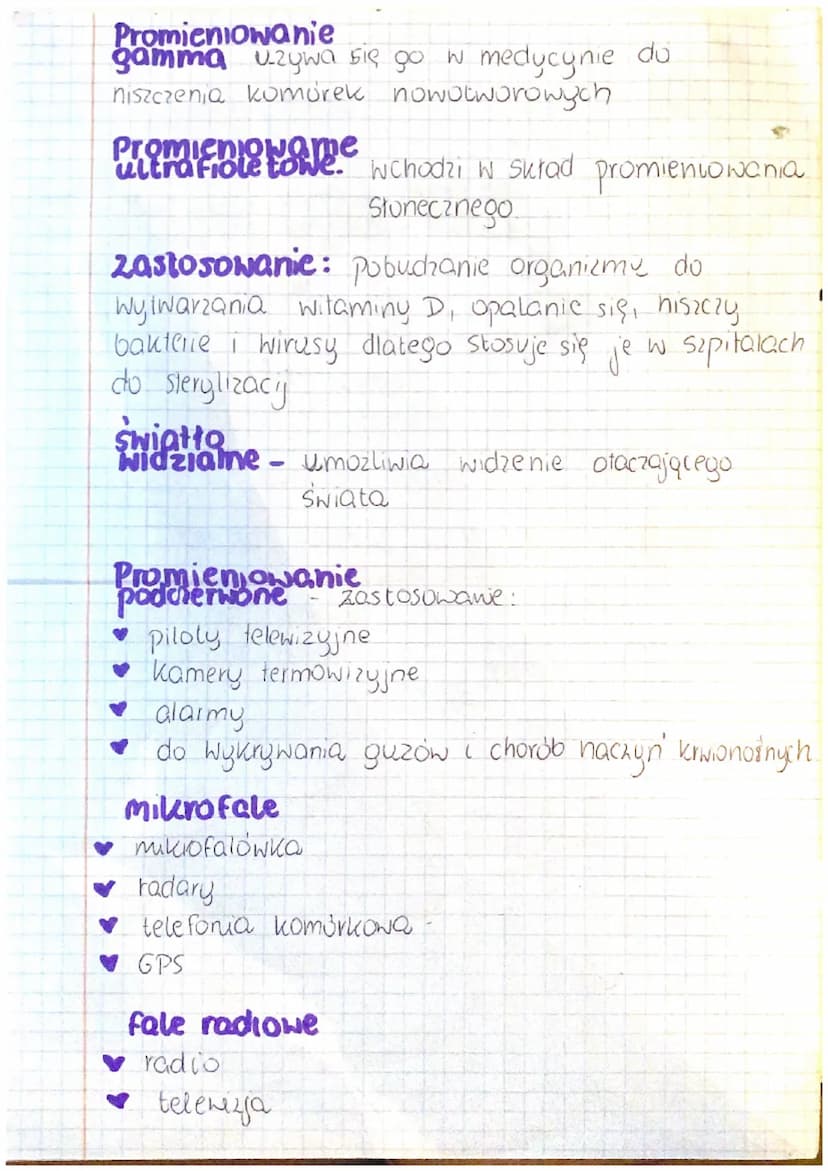 Promieniowanie
gamma używa się go w medycynie do
niszczenia komórek nowotworowych
Promieniowanie
ultrafioletowe. wchodzi w skład promieniowania
słonecznego.
zastosowanie: pobudzanie organizmu do
wytwarzania witaminy D, opalanie się, niszczy
bakterie i wirusy dlatego stosuje się je w szpitalach
do sterylizacji
światło
widzialne - umożliwia widzenie otaczającego
świata
Promieniowanie
podczerwone - zastosowanie:
♥ piloty telewizyjne
♥ kamery termowizyjne
♥ alarmy
♥ do wykrywania guzów i chorób naczyń krwionośnych
mikrofale
♥ mikrofalówka
♥ radary
♥ telefonia komórkowa -
♥ GPS
fale radiowe
♥ radio
♥ telewizja